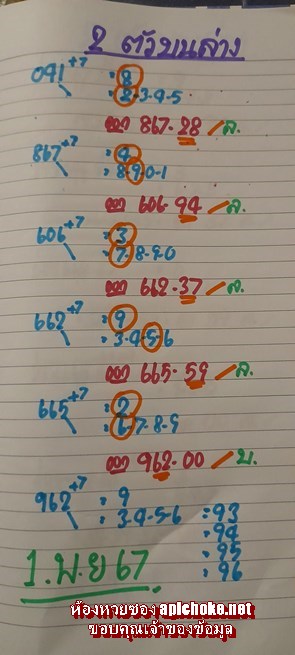 2 ตัวบนล่าง
091+7 : 8
: 2-3-4-5
867-28 / ล.
867+7 : 4
: 8-9-0-1
606-94 / ล.
606+7 : 3
: 7-8-9-0
662-37 / ล.
662+7 : 9
: 3-4-5-6
665-59 / ล.
665+7 : 2
: 6-7-8-9
962-00 / บ.
962+7 : 9
: 3-4-5-6
: 93
: 94
: 95
: 96
1.พ.ย 67
ห้องหวยซอง apichoke.net
ขอบคุณเจ้าของข้อมูล